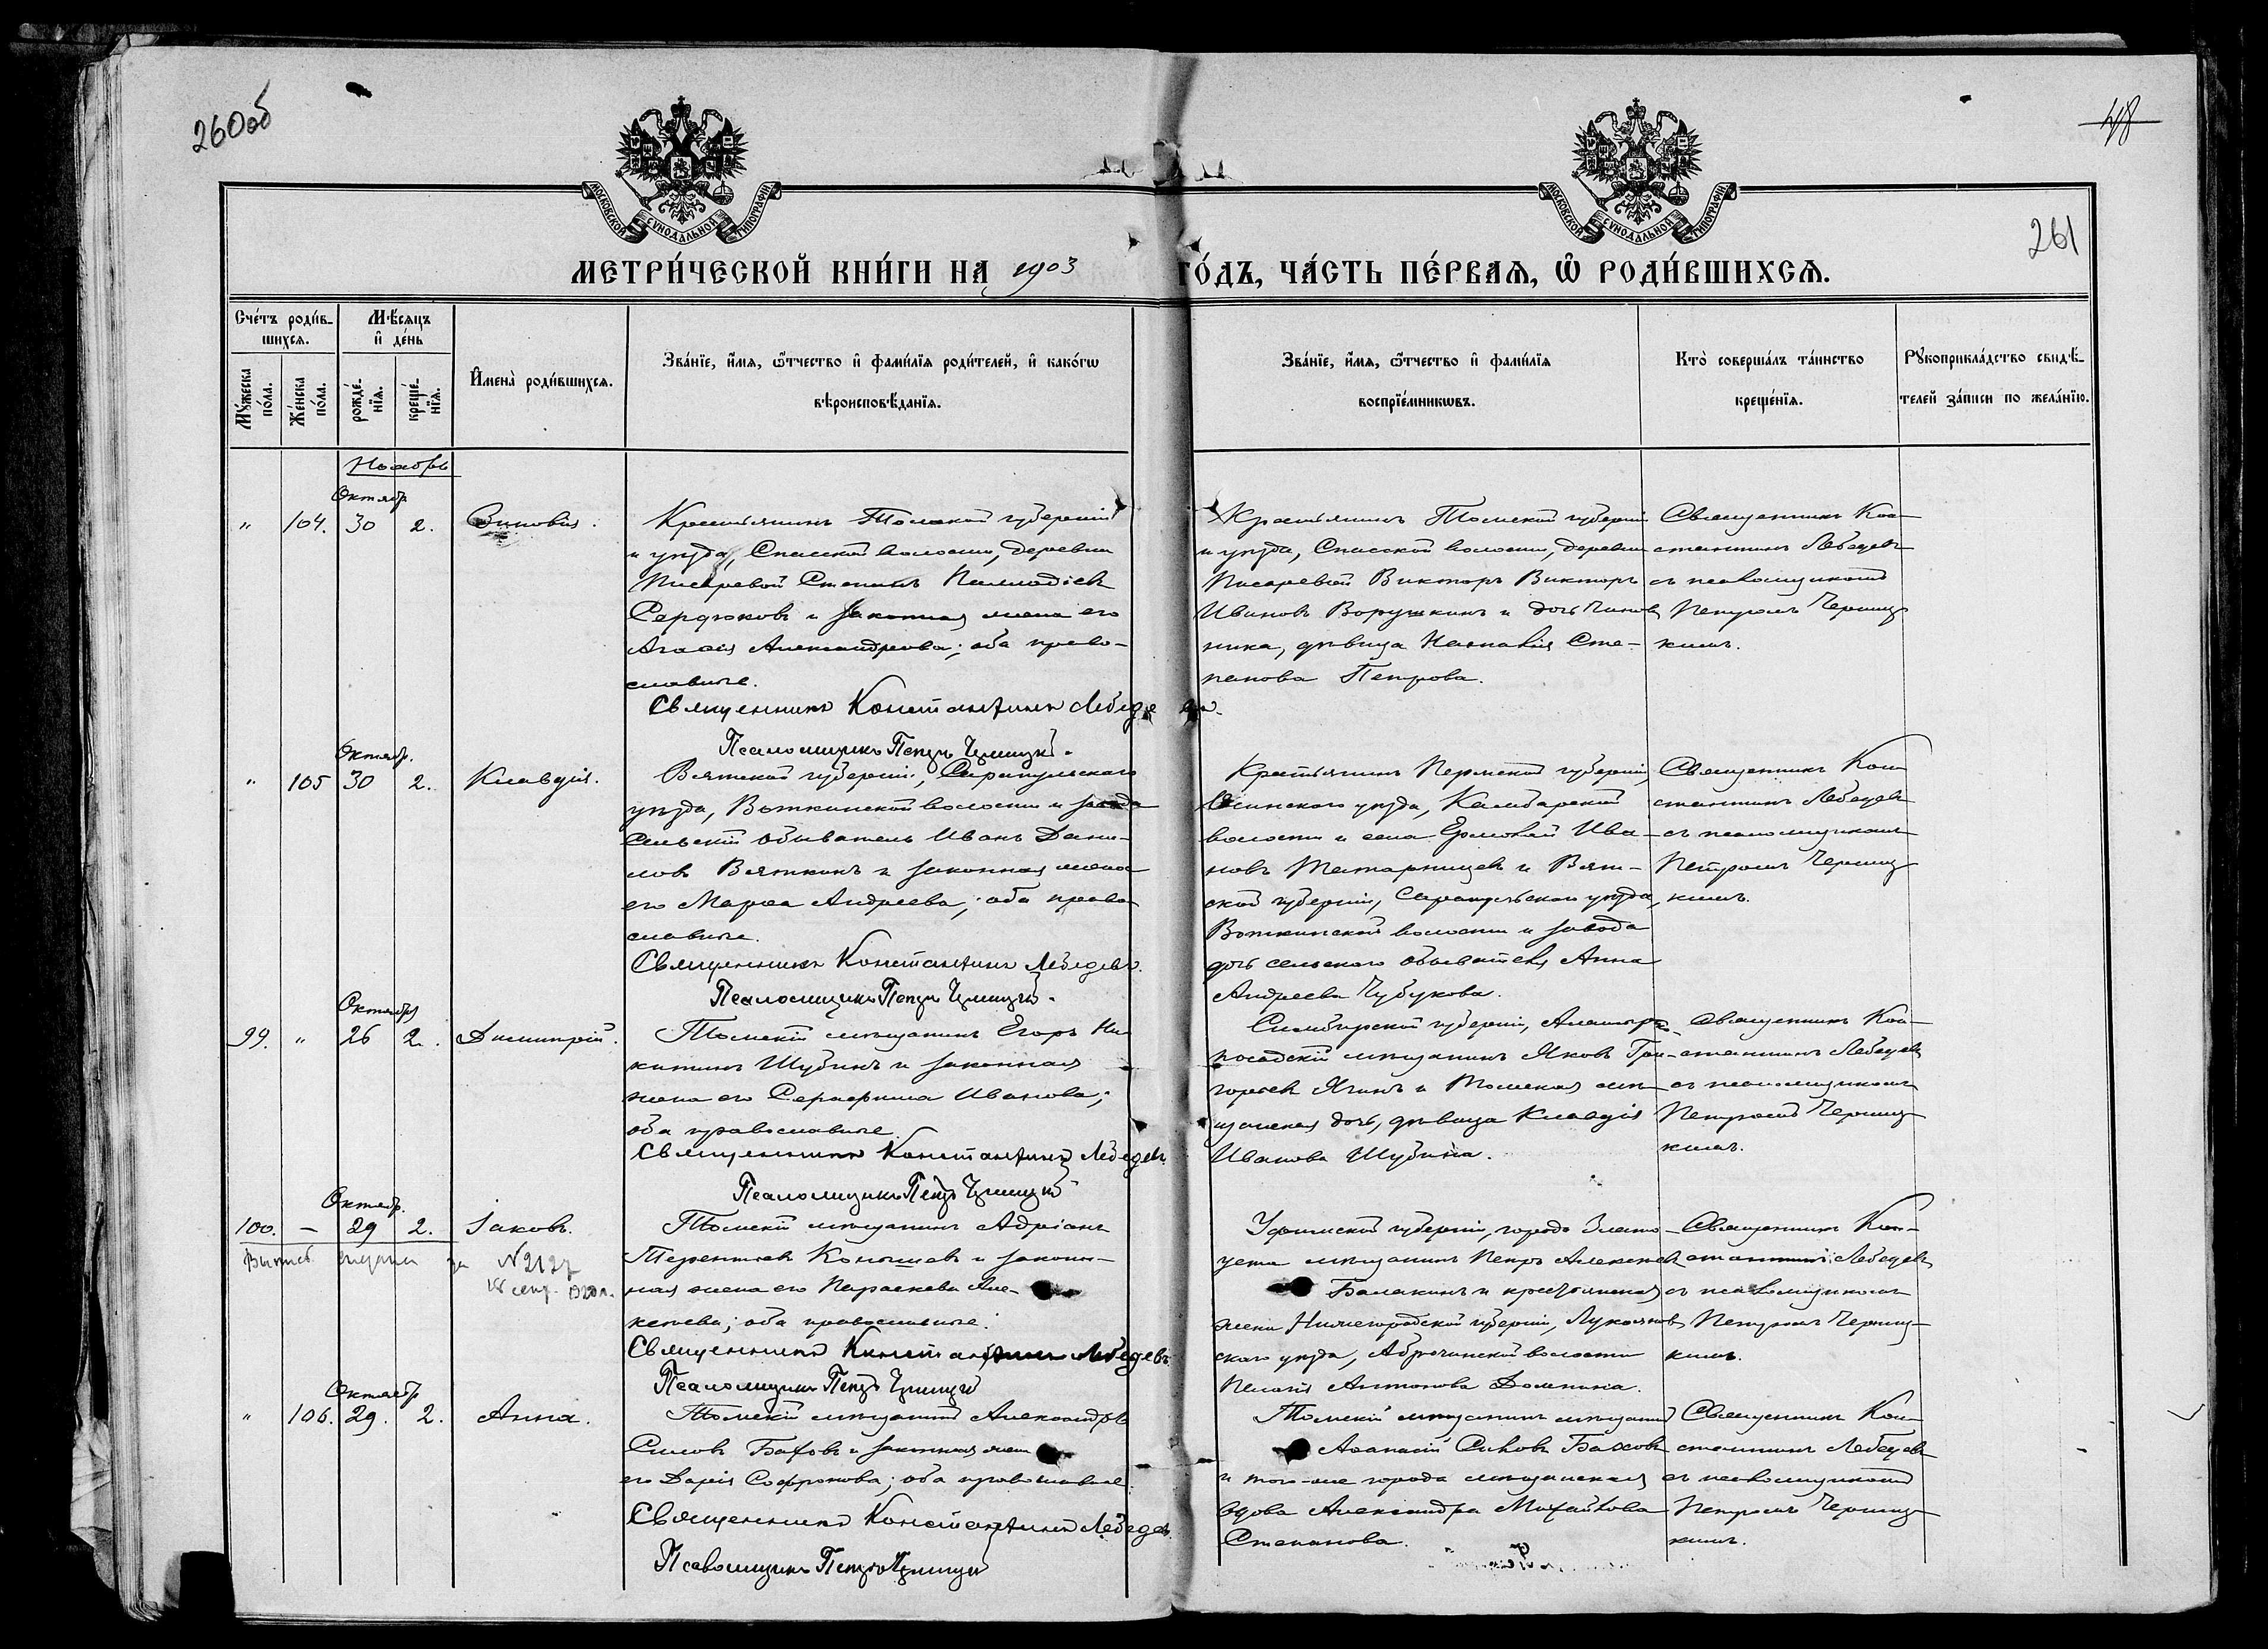 260об
48
261
МОСКОВСКОЙ СѴНОДАЛЬНОЙ ТИПОГРАФІИ
МОСКОВСКОЙ СѴНОДАЛЬНОЙ ТИПОГРАФІИ
МЕТРИ́ЧЕСКОЙ КНИ́ГИ НА 1903 ГО́ДЪ, ЧА́СТЬ ПЕ́РВАѦ, Ѡ҆ РОДИ́ВШИХСѦ.
Сче́тъ роди́в-
шихсѧ.
Мꙋ́жеска по́ла.
Же́нска по́ла.
Мѣ́сѧцъ и҆ де́нь
рожде́-
нїѧ.
креще́-
нїѧ.
И҆мена̀ роди́вшихсѧ.
Зва́нїе, и҆́мѧ, ѻ҆́тчество и҆ фами́лїѧ роди́телей, и҆ како́гѡ
вѣроисповѣ́данїѧ.
Зва́нїе, и҆́мѧ, ѻ҆́тчество и҆ фами́лїѧ
воспрїе́мникѡвъ.
Кто̀ соверша́лъ та́инство
креще́нїѧ.
Рꙋкоприкла́дство свидѣ́-
телей за́писи по жела́нїю.
Ноябрь
Октябр
" 104. 30 2. Зиновія.
Крестьянинъ Томской губерніи
и уѣзда, Спасской волости, деревни
Писаревой Степанъ
Сердюковъ и законная жена его
Агаѳія Александрова; оба право-
славные.
Священникъ Константинъ Лебедевъ.
Псаломщикъ Петръ
Крестьянинъ Томской губерніи
и уѣзда, Спасской волости, деревни
Писаревой Викторъ Викторъ
Ивановъ Ворушкинъ и дочь чинов
ника, дѣвица Наталія Сте-
панова Петрова.
Священникъ Кон-
стантинъ Лебедевъ
съ псаломщикомъ
Петромъ
кимъ.
Октябр.
" 105 30 2. Клавдія.
Вятской губерніи, Сарапульскаго
уѣзда, Воткинской волости и завода
сельскій обыватель Иванъ Дани-
ловъ Вяткинъ и законная жена
его Марѳа Андреева; оба право
славные.
Священникъ Константинъ Лебедевъ.
Псаломщикъ Петръ
Крестьянинъ Пермской губерніи,
Осинскаго уѣзда, Камбарской
волости и села Ермолай Ива-
новъ Татарницевъ и Вят-
ской губерніи, Сарапульскаго уѣзда,
Воткинской волости и завода
дочь сельскаго обывателя Анна
Андреева Чубукова.
Священникъ Кон
стантинъ Лебедевъ
съ псаломщикомъ
Петромъ
кимъ.
Октября
99. " 26 2. Димитрій.
Томскій мѣщанинъ Егоръ Ни
китинъ Шубинъ и законная
жена его Серафима Иванова;
оба православные.
Священникъ Константинъ Лебедевъ.
Псаломщикъ Петръ
Симбирской губерніи,
посадскій мѣщанинъ Яковъ Гри-
горьевъ Ягинъ и Томская мѣ
щанская дочь, дѣвица Клавдія
Иванова Шубина.
Священникъ Кон-
стантинъ Лебедевъ
съ псаломщикомъ
Петромъ
кимъ.
Октябр.
100. — 29 2. Іаковъ.
за N2127
Томскій мѣщанинъ Адріанъ
Терентьевъ Конышевъ и закон-
ная жена его Параскева Але-
ксѣева; оба православные.
Священникъ Константинъ Лебедевъ
Псаломщикъ Петръ
Уфимской губерніи, города Злато-
уста мѣщанинъ Петръ Алексѣевъ
Балакинъ и крестьянская
жена Нижегородской губерніи, Лукоянов
скаго уѣзда, волости
Пелагія Антонова Домнина.
Священникъ Кон-
стантинъ Лебедевъ
съ псаломщикомъ
Петромъ
кимъ.
Октябр
" 106. 29. 2. Анна.
Томскій мѣщанинъ Александръ
Силовъ Баховъ и законная жена
его Дарія Софронова; оба православные.
Священникъ Константинъ Лебедевъ.
Псаломщикъ Петръ
Томскій мѣщанинъ мѣщанинъ
Аѳанасій Силовъ Баховъ
и того-же города мѣщанская
вдова Александра Михайлова
Степанова.
Священникъ Кон-
стантинъ Лебедевъ
съ псаломщикомъ
Петромъ
кимъ.